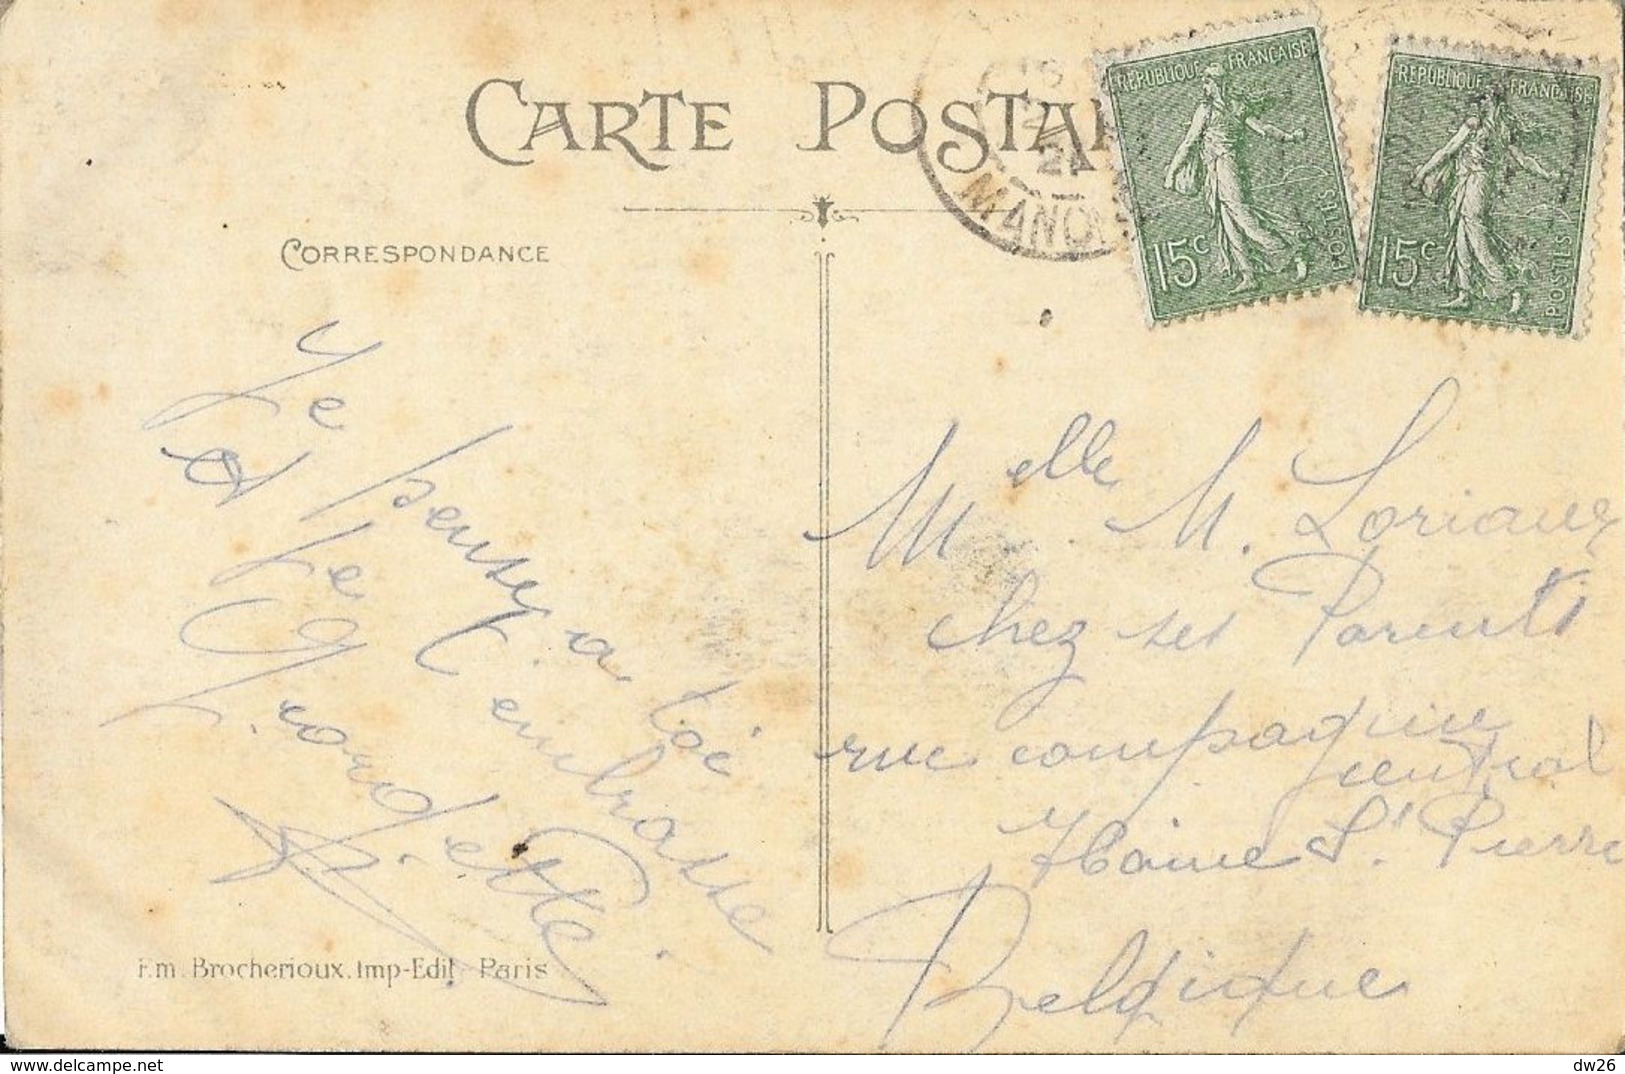 CARTE POSTA
REPUBLIQUE FRANÇAISE
15c
POSTES
REPUBLIQUE FRANÇAISE
15c
POSTES
21
MANO
CORRESPONDANCE
Je pense a toi
et te
t'embrasse
Melle M. Loriaux
chez ses Parents
rue
central
Haine St. Pierre
Belgique
Em. Brocherioux. Imp-Edit Paris
dw26